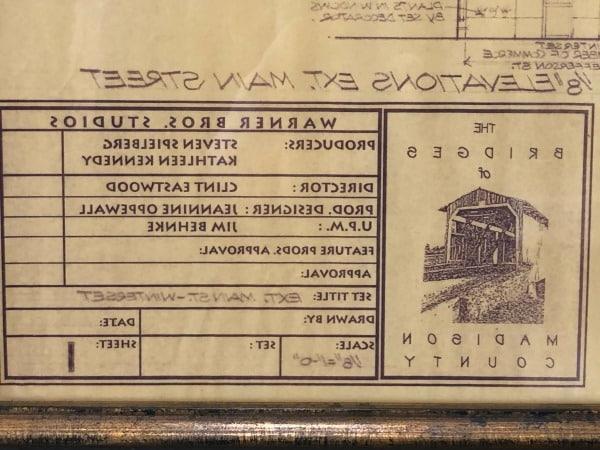 PLANTS IN WINDOWS
BY SET DECORATOR
WINTERSET
CHAMBER OF COMMERCE
JEFFERSON ST.
1/8" ELEVATIONS EXT. MAIN STREET
THE
BRIDGES
OF
MADISON
COUNTY
WARNER BROS. STUDIOS
PRODUCERS: STEVEN SPIELBERG
KATHLEEN KENNEDY
DIRECTOR: CLINT EASTWOOD
PROD. DESIGNER: JEANNINE OPPEWALL
U.P.M.: JIM BEHNKE
FEATURE PRODS. APPROVAL:
APPROVAL:
SET TITLE: EXT. MAIN ST-WINTERSET
DRAWN BY: DATE:
SCALE: 1/8"=1'-0" SET: SHEET: 1